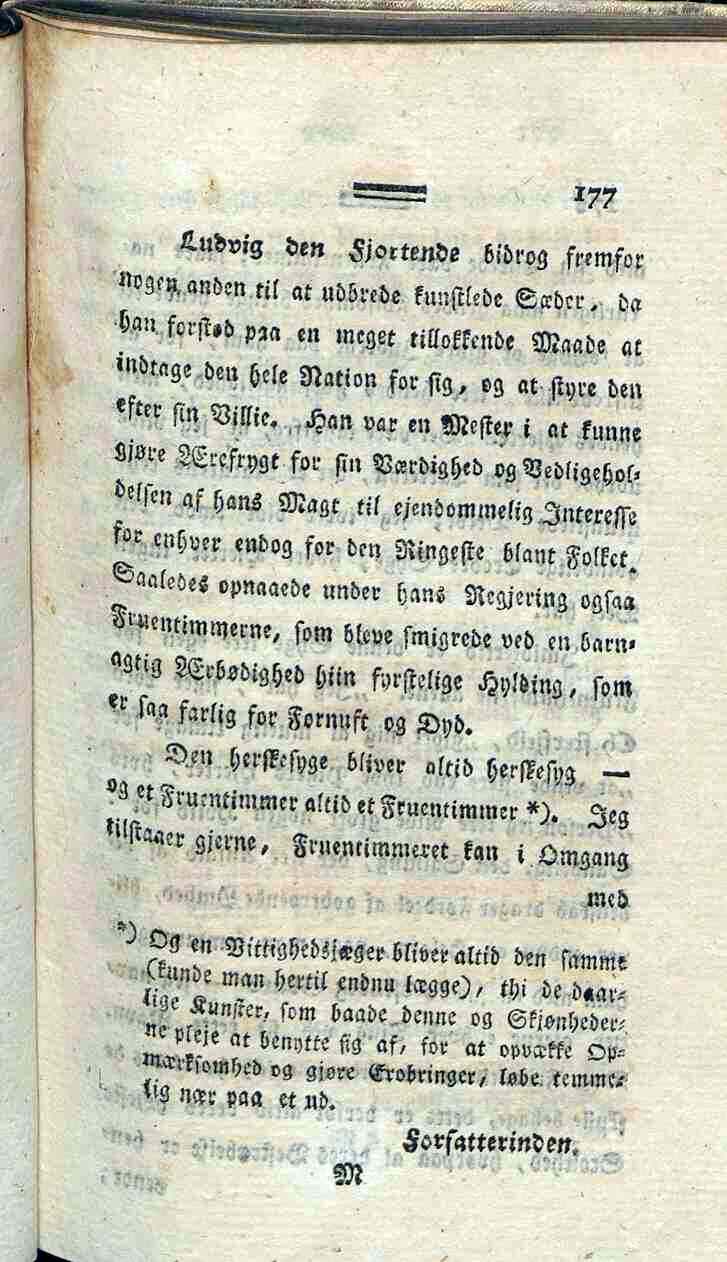 177
Ludvig den Fjortende bidrog fremfor
nogen anden til at udbrede kunstlede Sæder, da
han forstod paa en meget tillokkende Maade at
indtage den hele Nation for sig, og at styre den
efter sin Villie. Han var en Mester i at kunne
gjøre Ærefrygt for sin Værdighed og Vedligehol-
delsen af hans Magt til ejendommelig Interesse
for enhver endog for den Ringeste blant Folket.
Saaledes opnaaede under hans Regjering ogsaa
Fruentimmerne, som bleve smigrede ved en barn-
agtig Ærbødighed hiin fyrstelige Hylding, som
er saa farlig for Fornuft og Dyd.
Den herskesyge bliver altid herskesyg —
og et Fruentimmer altid et Fruentimmer *). Jeg
tilstaaer gjerne, Fruentimmeret kan i Omgang
med
*) Og en Vittighedsjæger bliver altid den samme
(kunde man hertil endnu lægge), thi de daar-
lige Kunster, som baade denne og Skjønheder-
ne pleje at benytte sig af, for at opvække Op-
mærksomhed og gjøre Erobringer, løbe temme-
lig nær paa et ud.
Forfatterinden.
M